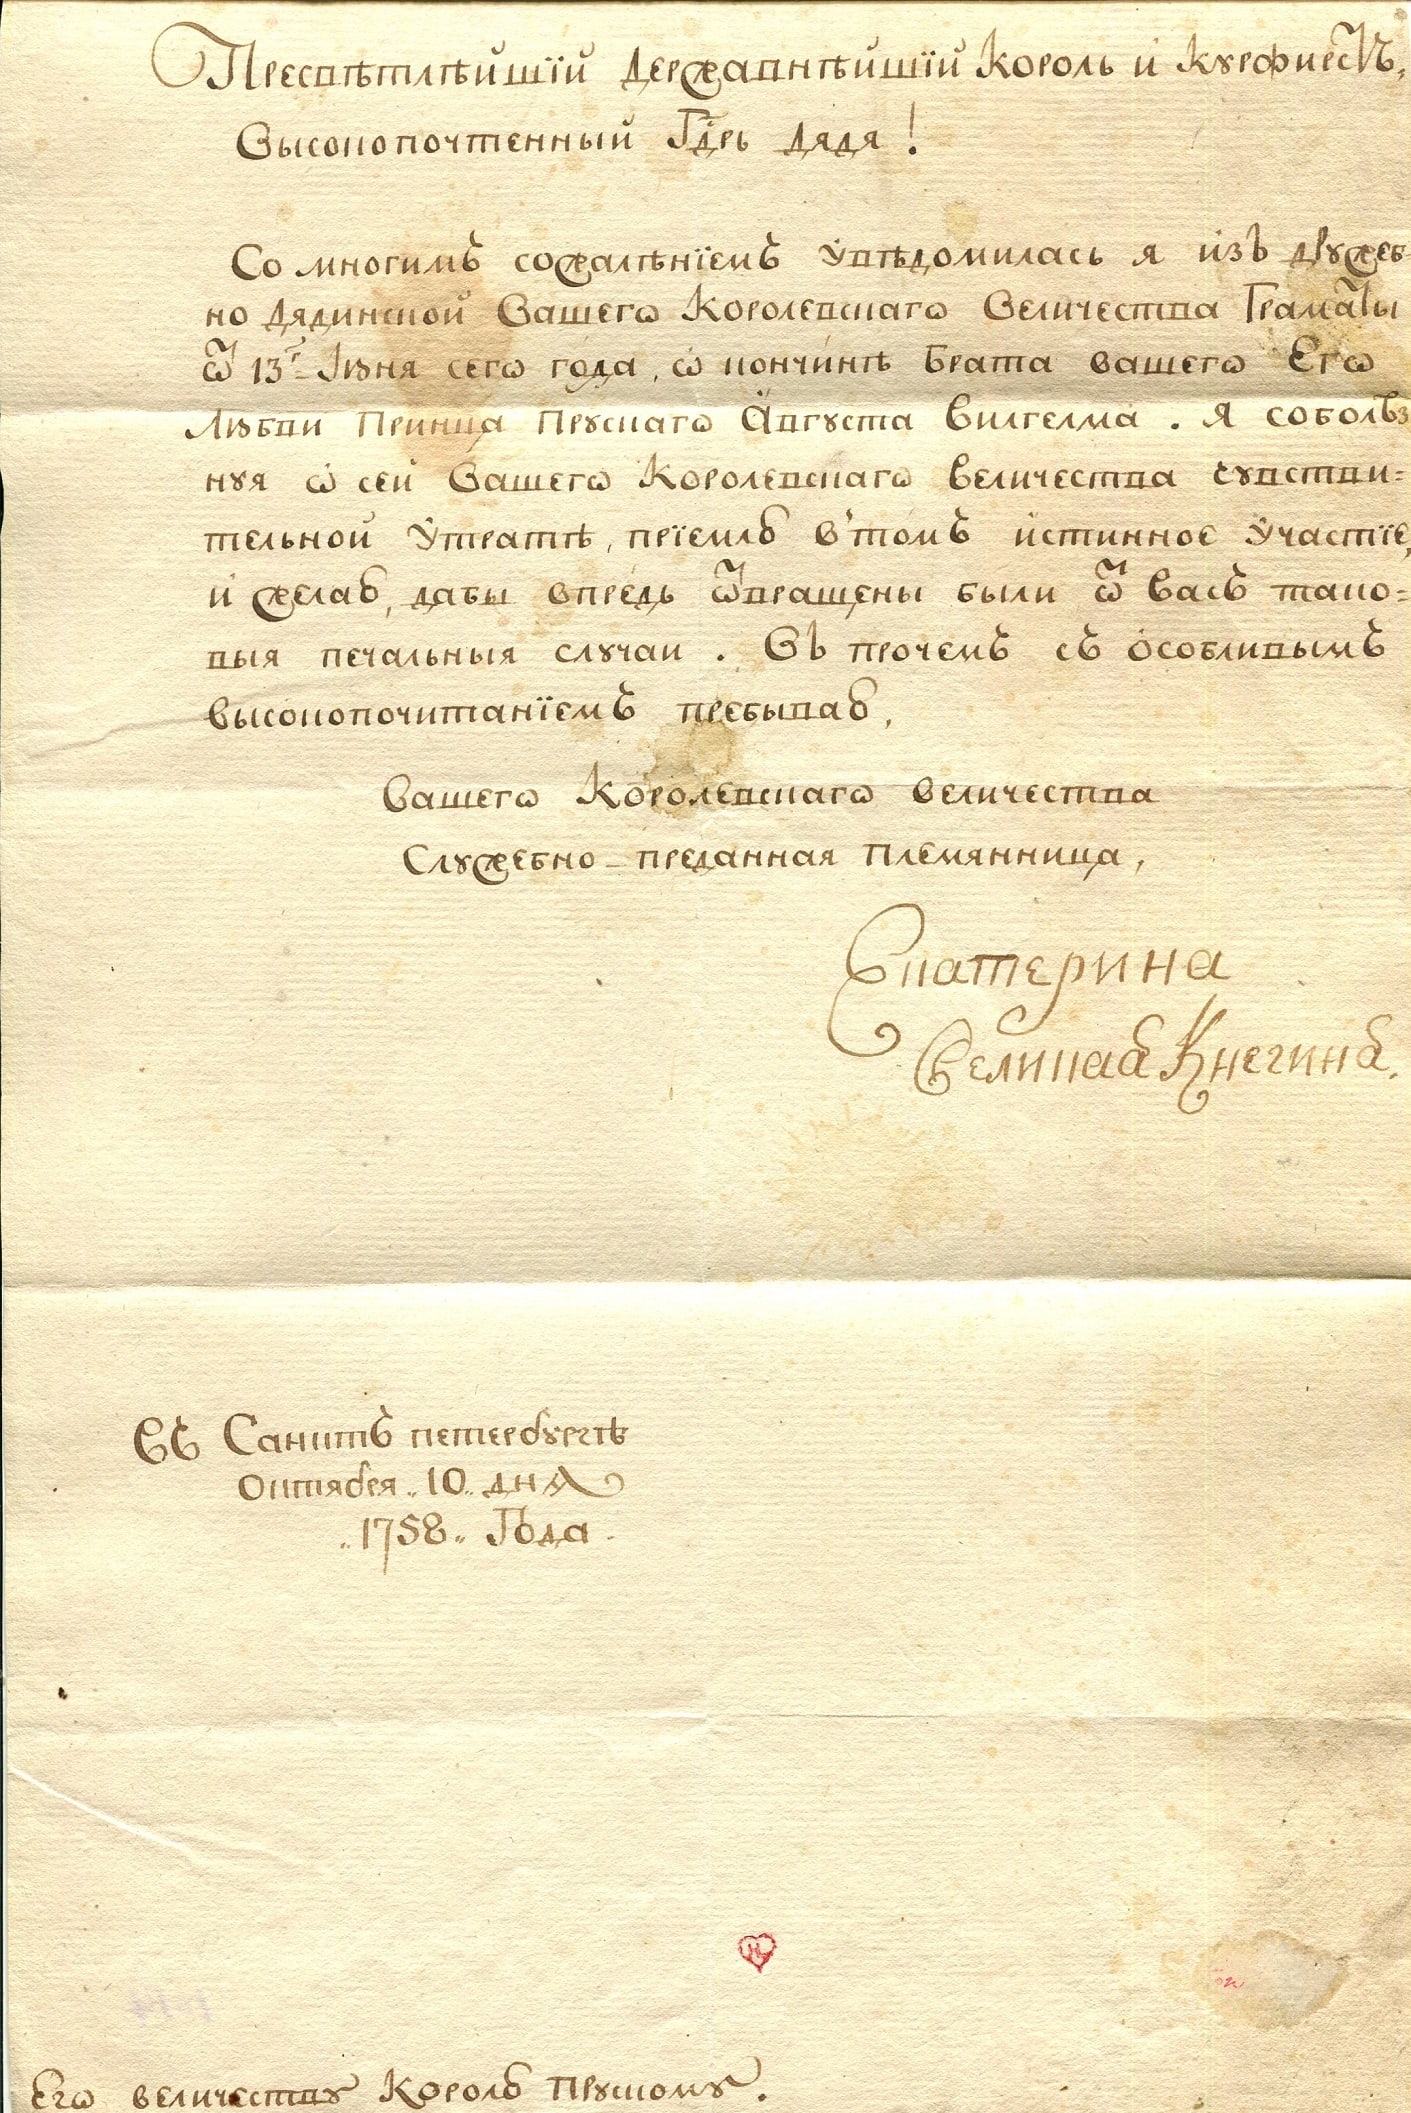 Пресвѣтлѣйшїй державнѣйшїй Король и Курфирстъ,
Высокопочтенный Гдрь дядя!
Со многимъ сожалѣнїемъ увѣдомилась я изъ дружеб
но дядинской Вашегѡ Королевскагѡ Величества Граматы
ѿ 13г Іюня сегѡ года, ѡ кончинѣ брата вашегѡ Егѡ
Любви Принца Прускагѡ Августа Вилгелма. Я соболѣз
нуя ѡ сей Вашегѡ Королевскагѡ Величества чувстви=
тельной утратѣ, прїемлю в'томъ истинное участїе,
и желаю, дабы впредь ѿвращены были ѿ Васъ тако=
выя печальныя случаи. Въ прочемъ съ особливымъ
высокопочитанїемъ пребываю,
Вашегѡ Королевскагѡ Величества
Служебно-преданная Племянница,
Екатерина
Великаю Кнегиню.
Въ Санктъ петербургѣ
Октября „10„ дня
„1758„ Года.
Егѡ величеству Королю Прускому.